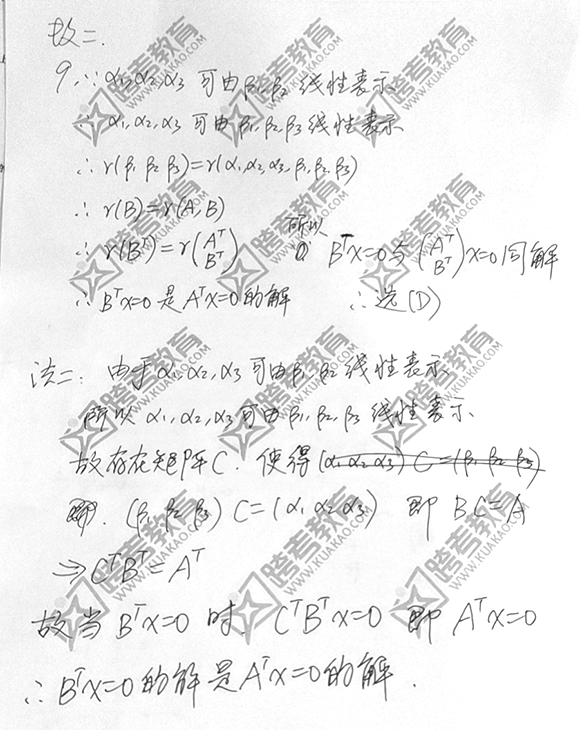 数二.
9. ∵ α₁,α₂,α₃ 可由β₁,β₂ 线性表示
∴ α₁,α₂,α₃ 可由β₁,β₂,β₃ 线性表示
∴ r(β₁ β₂ β₃)=r(α₁,α₂,α₃,β₁,β₂,β₃)
∴ r(B)=r(A,B)
∴ r(Bᵀ)=r(Aᵀ Bᵀ) 所以 BᵀX=0与(Aᵀ Bᵀ)X=0同解
∴ BᵀX=0 是AᵀX=0的解 ∴ 选(D)
法二: 由于α₁,α₂,α₃可由β₁,β₂线性表示
所以 α₁,α₂,α₃可由β₁,β₂,β₃ 线性表示
故存在矩阵C. 使得(α₁ α₂ α₃) C=(β₁ β₂ β₃)
即. (β₁ β₂ β₃) C=(α₁ α₂ α₃) 即 BC=A
⇒ CᵀBᵀ=Aᵀ
故当 BᵀX=0 时. CᵀBᵀX=0 即 AᵀX=0
∴ BᵀX=0的解是AᵀX=0的解.
跨考教育
WWW.KUAKAO.COM